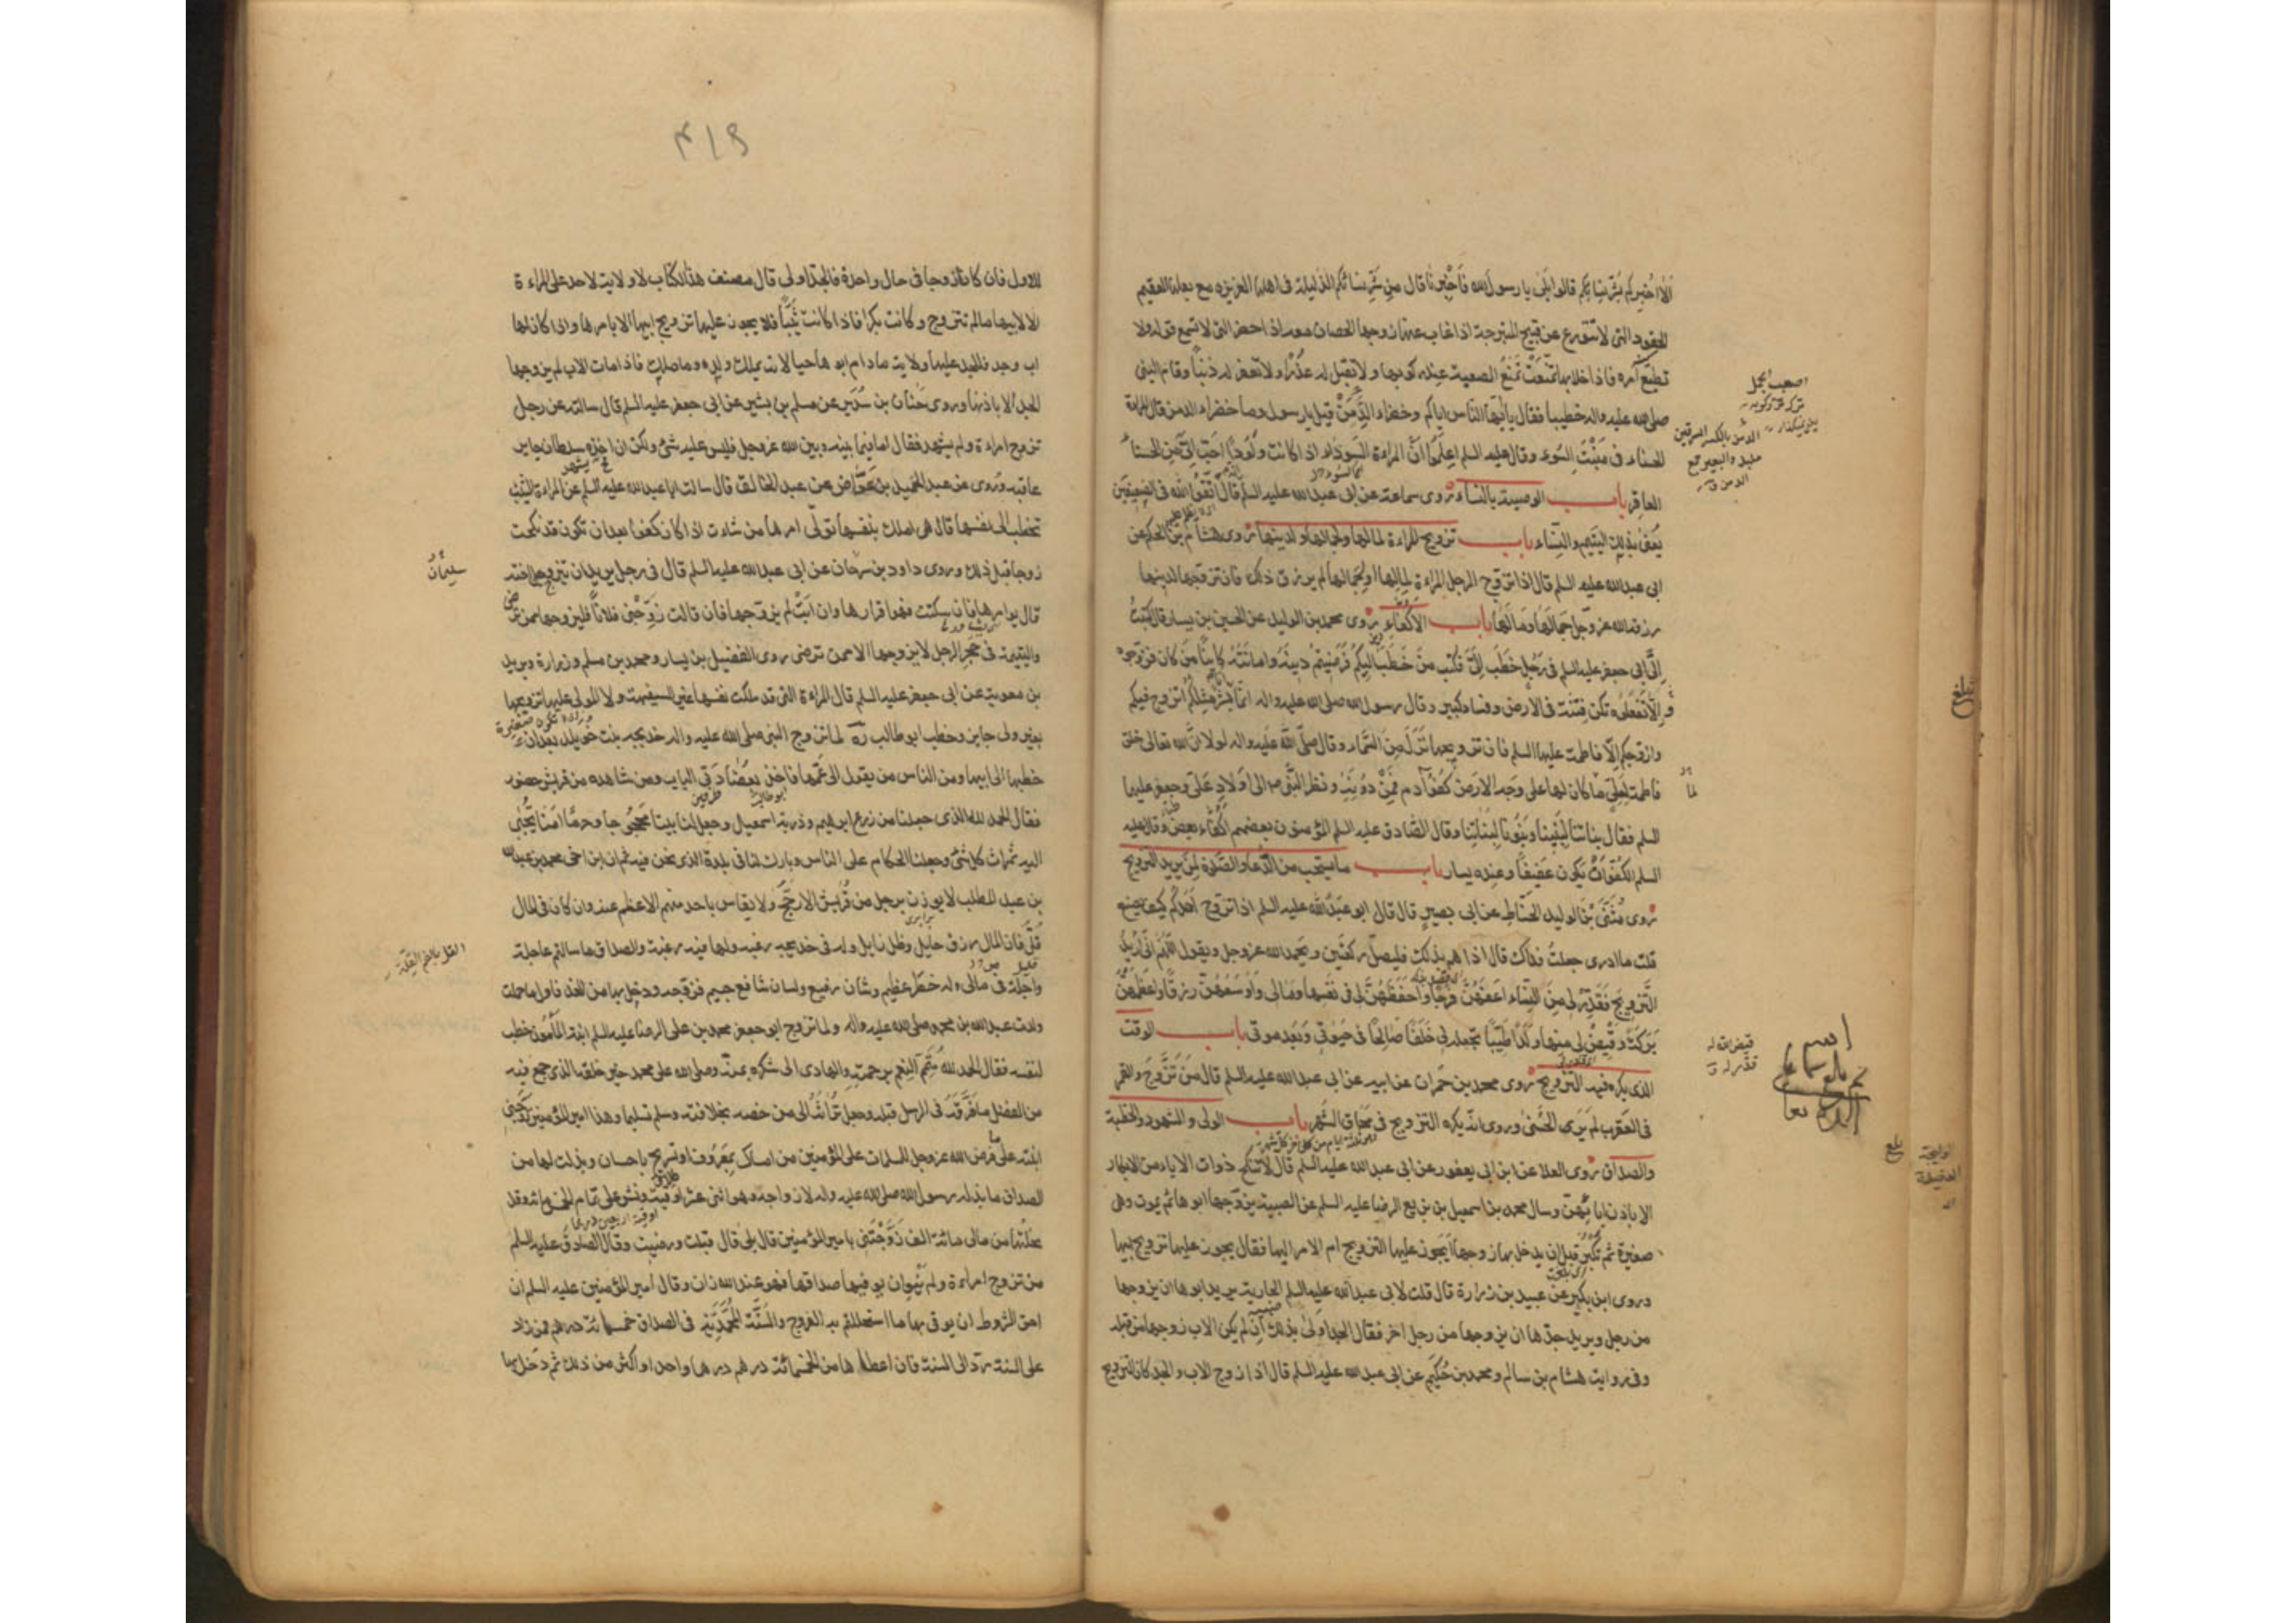 الا اخبركم بشر نسائكم قالوا بلى يا رسول الله فاخبرنا قال من شر نسائكم الذليلة فى اهلها العزيزة مع بعلها العقيم
الحقود التى لا تتورع عن قبيح المتبرجة اذا غاب عنها زوجها الحصان معه اذا حضر التى لا تسمع قوله ولا
تطيع امره فاذا خلا بها تمنعت تمنع الصعبة عند ركوبها ولا تقبل له عذرا ولا تغفر له ذنبا وقام النبى
صلى الله عليه واله خطيبا فقال يا ايها الناس اياكم وخضراء الدمن قيل يا رسول وما خضراء الدمن قال المراة
الحسناء فى منبت السوء وقال عليه السلم اعلموا ان المراة السوداء اذا كانت ولودا احب الى من الحسناء
العاقر باب الوصية بالنساء روى سماعة عن ابى عبد الله عليه السلم قال اتقوا الله فى الضعيفين
يعنى بذلك اليتيم والنساء باب تزويج المراءة لمالها ولجمالها او لدينها روى هشام بن الحكم عن
ابى عبد الله عليه السلم قال اذا تزوج الرجل المراءة لمالها او لجمالها لم يرزق ذلك فان تزوجها لدينها
رزقه الله عز وجل جمالها ومالها باب الاكفاء روى محمد بن الوليد عن الحسين بن يسار قال كتبت
الى ابى جعفر عليه السلم فى رجل خطب الى فكتب من خطب اليكم فرضيتم دينه وامانته كاينا من كان فزوجوه
والا تفعلوه تكن فتنة فى الارض وفساد كبير وقال رسول الله صلى الله عليه واله انما انا بشر مثلكم اتزوج فيكم
وازوجكم الا فاطمة عليها السلم فان تزويجها نزل من السماء وقال صلى الله عليه واله لولا ان الله تعالى خلق
فاطمة لعلى ما كان لها على وجه الارض كفو آدم فمن دونه ونظر النبى ص الى اولاد على وجعفر عليهما
السلم فقال بناتنا لبنينا وبنونا لبناتنا وقال الصادق عليه السلم المؤمنون بعضهم اكفاء بعض وقال عليه
السلم الكفو ان يكون عفيفا وعنده يسار باب ما يستحب من الدعاء والصلوة لمن يريد التزويج
روى مثنى بن الوليد الحناط عن ابى بصير قال قال ابو عبد الله عليه السلم اذا تزوج احدكم كيف يصنع
قلت ما ادرى جعلت فداك قال اذا هم بذلك فليصل ركعتين ويحمد الله عز وجل ويقول اللهم انى اريد
التزويج فقدر لى من النساء اعفهن فرجا واحفظهن لى فى نفسها ومالى واوسعهن رزقا واعظمهن
بركة وقيض لى منها ولدا طيبا تجعله لى خلفا صالحا فى حيوتى وبعد موتى باب الوقت
الذى يكره فيه التزويج روى محمد بن حمران عن ابيه عن ابى عبد الله عليه السلم قال من تزوج والقمر
فى العقرب لم ير الحسنى وروى انه يكره التزويج فى محاق الشهر باب الولى والشهود والخطبة
والصداق روى العلا عن ابن ابى يعفور عن ابى عبد الله عليه السلم قال لا تنكح ذوات الاباء من الابكار
الا باذن ابائهن وسال محمد بن اسمعيل بن بزيع الرضا عليه السلم عن الصبية يزوجها ابوها ثم يموت وهى
صغيرة ثم تكبر قبل ان يدخل بها زوجها ايجوز عليها التزويج ام الامر اليها فقال يجوز عليها تزويج ابيها
وروى ابن بكير عن عبيد بن زرارة قال قلت لابى عبد الله عليه السلم الجارية يريد ابوها ان يزوجها
من رجل ويريد جدها ان يزوجها من رجل اخر فقال الجد اولى بذلك ان لم يكن الاب زوجها من قبله
وفى رواية هشام بن سالم ومحمد بن حكيم عن ابى عبد الله عليه السلم قال اذا زوج الاب والجد كان التزويج
اصعب الجمل
الدمن بالكسر السرقين
متلبد والبعر جمع
الدمن ق
لما
قيض الله له
قدر له ق
بلغ
٤١٩
للاول فان كانا زوجا فى حال واحدة فالجد اولى قال مصنف هذا الكتاب لا ولاية لاحد على المراءة
الا لابيها ما لم تتزوج وكانت بكرا فاذا كانت ثيبا فلا يجوز عليها تزويج ابيها الا بامرها واذا كان لها
اب وجد فللجد عليها ولاية ما دام ابوها حيا لانه يملك ولده وما ملك فاذا مات الاب لم يزوجها
الجد الا باذنها وروى حنان بن سدير عن مسلم بن بشير عن ابى جعفر عليه السلم قال سالته عن رجل
تزوج امراءة ولم يشهد فقال اما فيما بينه وبين الله عز وجل فليس عليه شئ ولكن ان اخذه سلطان جاير
عاقبه وروى عن عبد الحميد بن عواض عن عبد الخالق قال سالت ابا عبد الله عليه السلم عن المراءة الثيب
تخطب الى نفسها قال هى املك بنفسها تولى امرها من شاءت اذا كان كفوا بعد ان تكون قد نكحت
زوجا قبل ذلك وروى داود بن سرحان عن ابى عبد الله عليه السلم قال فى رجل يريد ان يزوج اخته
قال يوامرها فان سكتت فهو اقرارها وان ابت لم يزوجها فان قالت زوجنى فلانا فليزوجها ممن ترضى
واليتيمة فى حجر الرجل لا يزوجها الا ممن ترضى روى الفضيل بن يسار ومحمد بن مسلم وزرارة وبريد
بن معوية عن ابى جعفر عليه السلم قال المراءة التى قد ملكت نفسها غير السفيهة ولا المولى عليها تزويجها
بغير ولى جايز وخطب ابو طالب ره لما تزوج النبى صلى الله عليه واله خديجه بنت خويلد بعد ان
خطبها الى ابيها ومن الناس من يقول الى عمها فاخذ بعضادتى الباب ومن شاهده من قريش حضور
فقال الحمد لله الذى جعلنا من زرع ابرهيم وذرية اسمعيل وجعل لنا بيتا محجوجا وحرما امنا يجبى
اليه ثمرات كل شئ وجعلنا الحكام على الناس وبارك لنا فى بلدنا الذى نحن فيه ثم ان ابن اخى محمد بن عبد الله
بن عبد المطلب لا يوزن برجل من قريش الا رجح ولا يقاس باحد منهم الا عظم عنه وان كان فى المال
قل فان المال رزق حايل وظل زايل وله فى خديجه رغبة ولها فيه رغبة والصداق ما سالتم عاجله
واجله فى مالى وله خطر عظيم وشان رفيع ولسان شافع جسيم فزوجه ودخل بها من الغد فاول ما حملت
ولدت عبد الله بن محمد صلى الله عليه واله ولما تزوج ابو جعفر محمد بن على الرضا عليه السلم ابنة المأمون خطب
لنفسه فقال الحمد لله متم النعم برحمته والهادى الى شكره بمنه وصلى الله على محمد خير خلقه الذى جمع فيه
من الفضل ما فرقه فى الرسل قبله وجعل تراثه الى من خصه بخلافته وسلم تسليما وهذا امير المؤمنين زوجنى
ابنته على ما فرض الله عز وجل للمسلمات على المؤمنين من امساك بمعروف او تسريح باحسان وبذلت لها من
الصداق ما بذله رسول الله صلى الله عليه واله لازواجه وهو اثنى عشر اوقية ونش على تمام الخمسمائة وقد
نحلتها من مالى مائة الف زوجتنى يا امير المؤمنين قال بلى قال قبلت ورضيت وقال الصادق عليه السلم
من تزوج امراءة ولم ينو ان يوفيها صداقها فهو عند الله زان وقال امير المؤمنين عليه السلم ان
احق الشروط ان يوفى بها ما استحللتم به الفروج والسنة المحمدية فى الصداق خمسمائة درهم فمن زاد
على السنة رد الى السنة فان اعطاها من الخمسمائة درهم درهما واحدا او اكثر من ذلك ثم دخل بها
سليمان
القل بالضم القلة